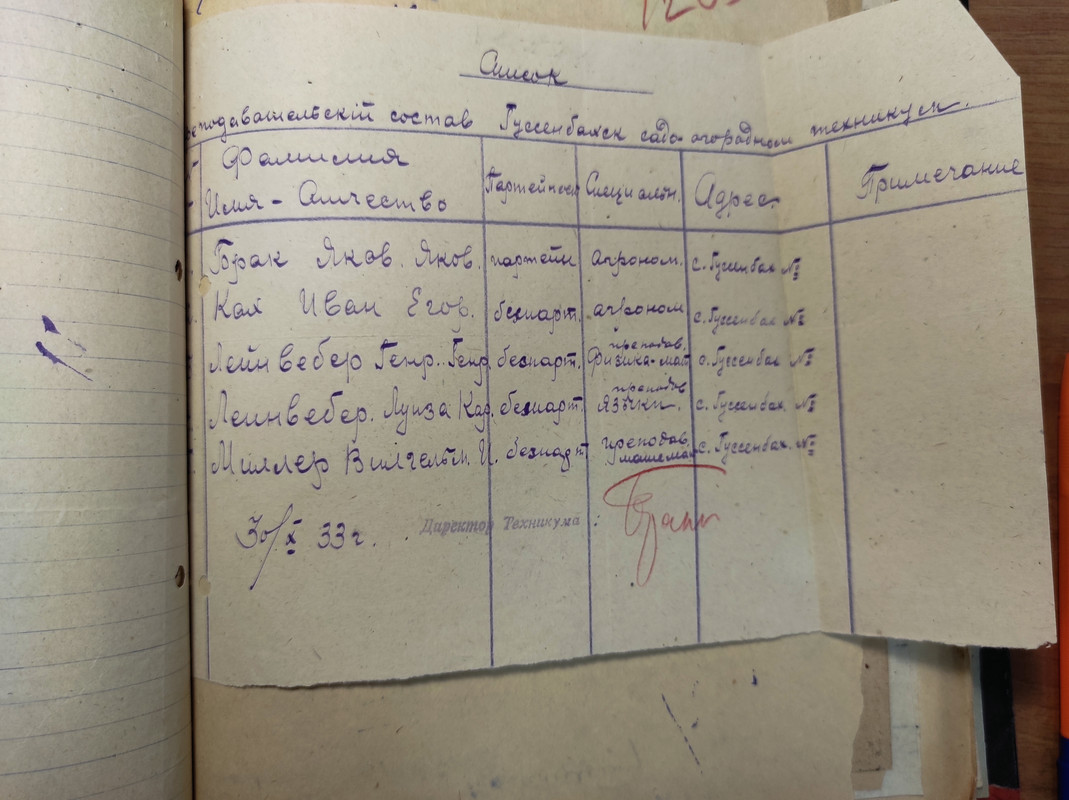 Список
преподавательскій состав Гуссенбахск садо-огородном техникуск.
Фамилия
Имя - Отчество
Партейност
Специальн.
Адрес.
Примечание
Брак Яков. Яков. партейн агроном. с. Гуссенбах №
Кох Иван Егор. беспарт. агроном с. Гуссенбах №
Лейнвебер Генр. Генр. беспарт. преподав. Физика-мат с. Гуссенбах №
Лейнвебер. Луиза Кар. беспарт. преподав языки. с. Гуссенбах. №
Миллер Вильгельм. И. беспарт преподав. математ с. Гуссенбах. №
30/X 33 г.
Директор Техникума :